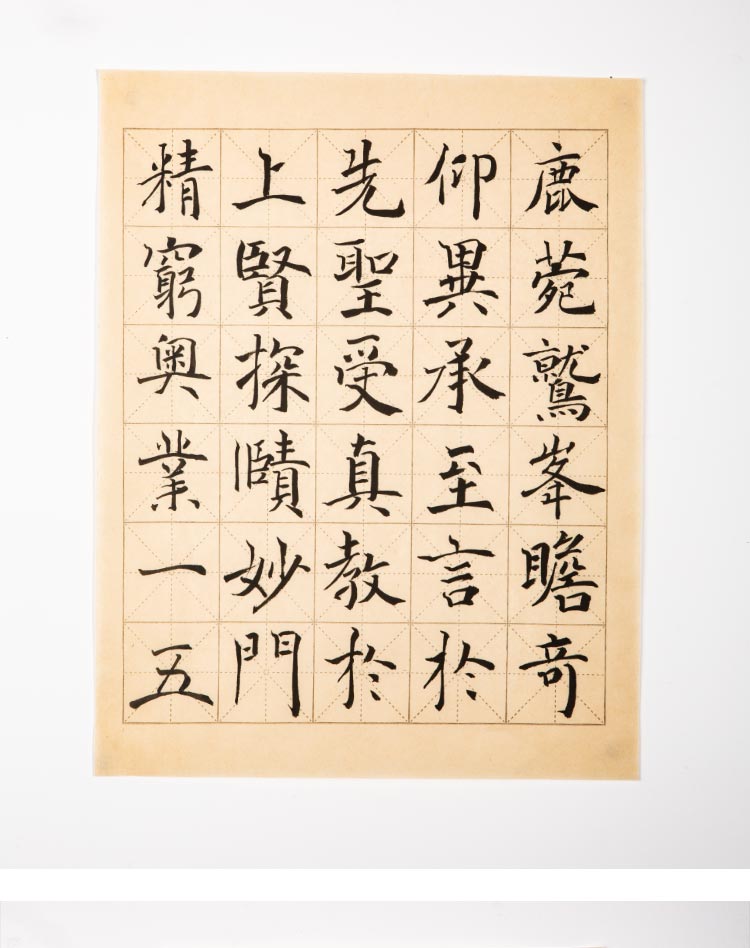 鹿菀鷲峯瞻奇
仰異承至言於
先聖受真教於
上賢探賾妙門
精窮奥業一五